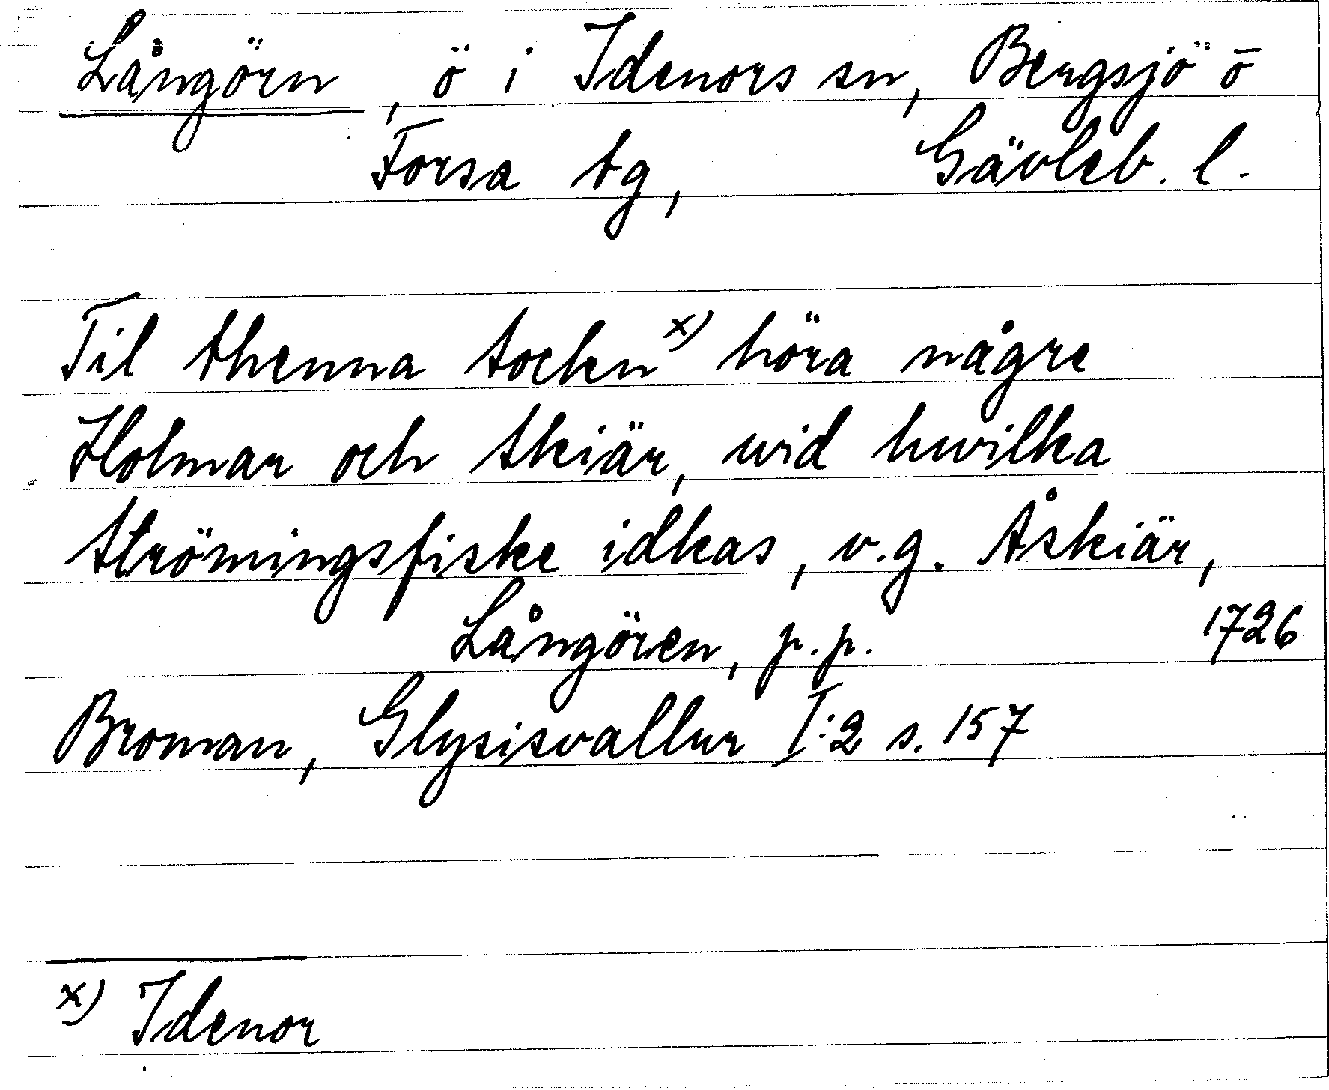 Långörn, ö i Idenors sn, Bergsjö o
Forsa tg, Gävleb. l.
Til thenna Socken x) höra någre
Holmar och Skiär, wid hwilka
Strömingsfiske idkas, v.g. Åskiär,
Långören, p.p. 1726
Broman, Glysisvallur I:2 s. 157
x) Idenor